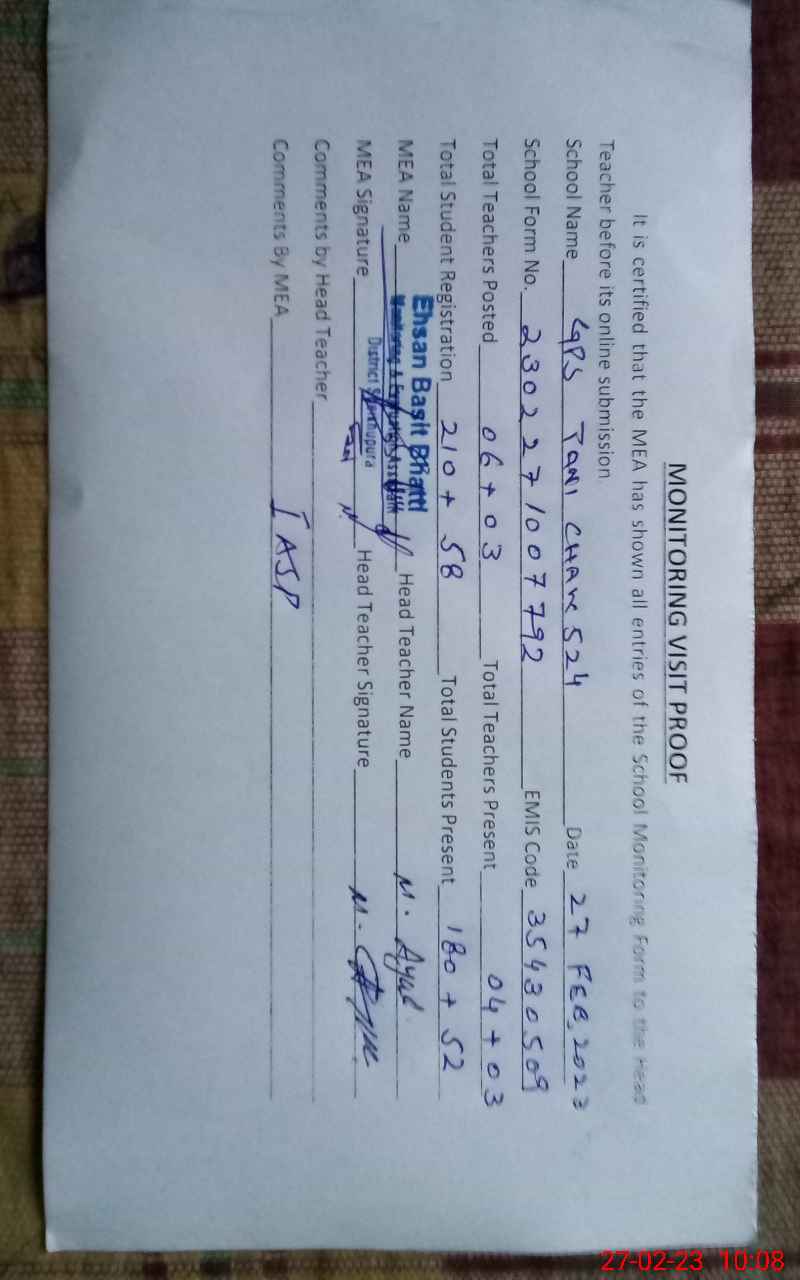 MONITORING VISIT PROOF
It is certified that the MEA has shown all entries of the School Monitoring Form to the Head
Teacher before its online submission
School Name GPS CHAK 524 Date 27 FEB, 2023
School Form No. 2302271007792 EMIS Code 35430509
Total Teachers Posted 06 + 03 Total Teachers Present 04 + 03
Total Student Registration 210 + 58 Total Students Present 180 + 52
Ehsan Basit Bhatti
MEA Name Monitoring & Evaluation Assistant Head Teacher Name M.
District Sheikhupura
MEA Signature Head Teacher Signature M.
Comments by Head Teacher
Comments By MEA I ASP
27-02-23 10:08